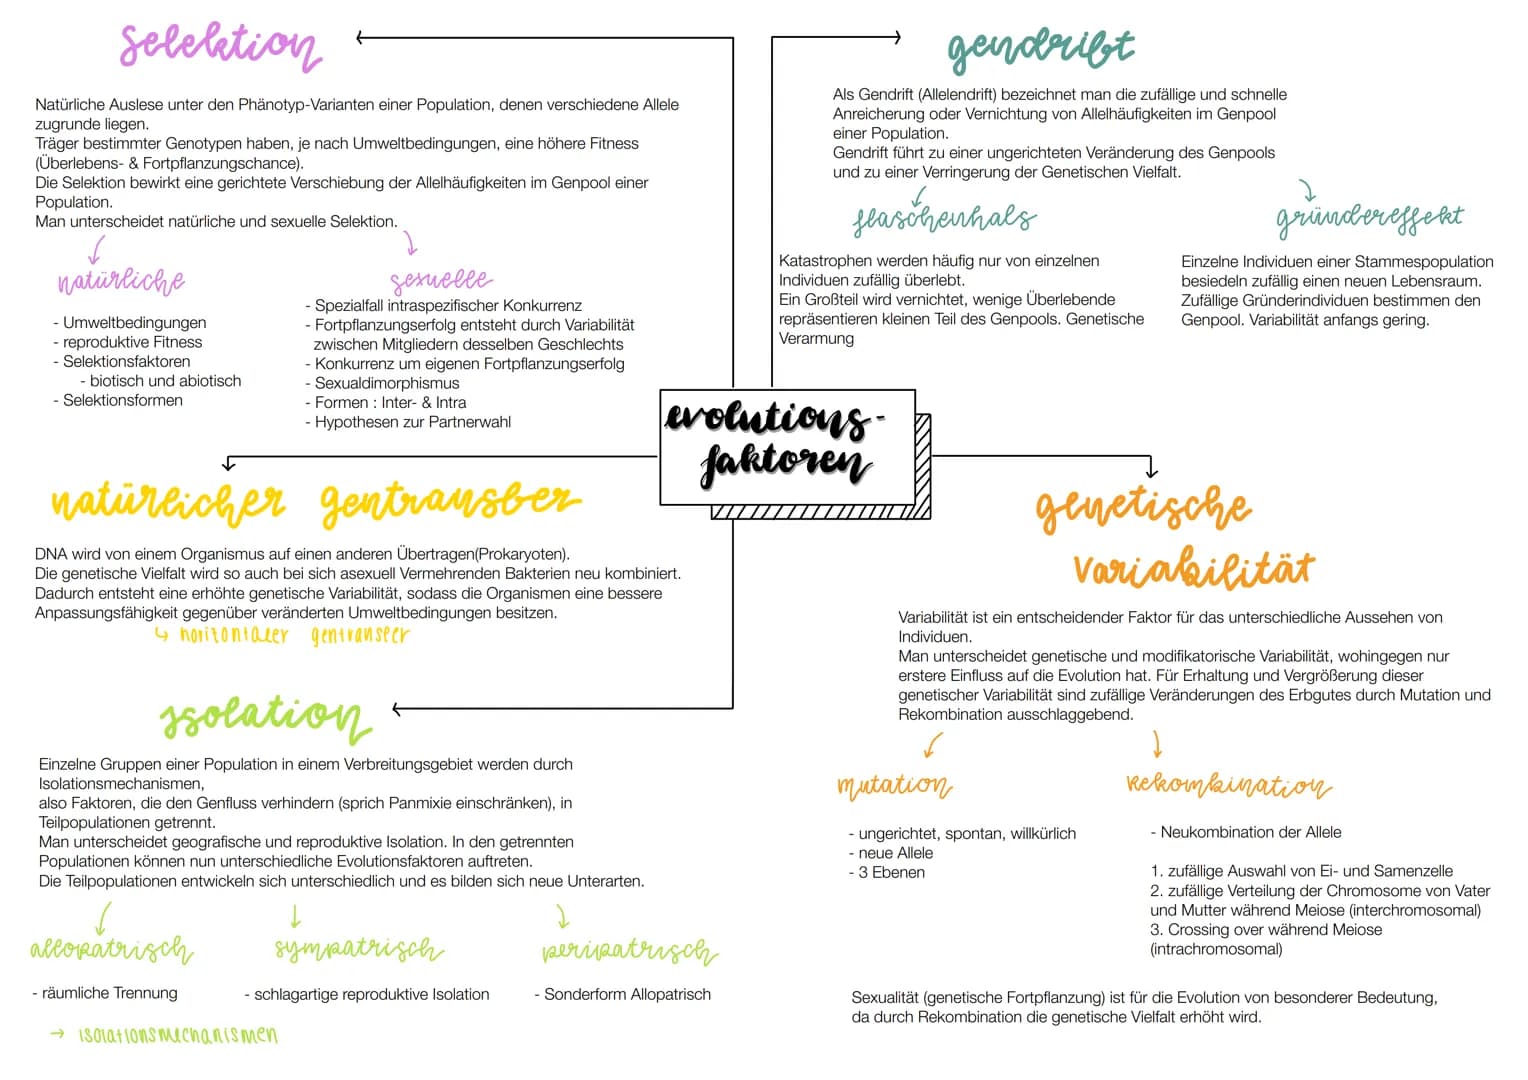 selektion
Natürliche Auslese unter den Phänotyp-Varianten einer Population, denen verschiedene Allele
zugrunde liegen.
Träger bestimmter Genotypen haben, je nach Umweltbedingungen, eine höhere Fitness
(Überlebens- & Fortpflanzungschance).
Die Selektion bewirkt eine gerichtete Verschiebung der Allelhäufigkeiten im Genpool einer
Population.
Man unterscheidet natürliche und sexuelle Selektion.
natürliche
- Umweltbedingungen
- reproduktive Fitness
- Selektionsfaktoren
- biotisch und abiotisch
- Selektionsformen
sexuelle
- Spezialfall intraspezifischer Konkurrenz
- Fortpflanzungserfolg entsteht durch Variabilität
zwischen Mitgliedern desselben Geschlechts
- Konkurrenz um eigenen Fortpflanzungserfolg
- Sexualdimorphismus
- Formen : Inter- & Intra
- Hypothesen zur Partnerwahl
gendrift
Als Gendrift (Allelendrift) bezeichnet man die zufällige und schnelle
Anreicherung oder Vernichtung von Allelhäufigkeiten im Genpool
einer Population.
Gendrift führt zu einer ungerichteten Veränderung des Genpools
und zu einer Verringerung der Genetischen Vielfalt.
flaschenhals
Katastrophen werden häufig nur von einzelnen
Individuen zufällig überlebt.
Ein Großteil wird vernichtet, wenige Überlebende
repräsentieren kleinen Teil des Genpools. Genetische
Verarmung
gründereffekt
Einzelne Individuen einer Stammespopulation
besiedeln zufällig einen neuen Lebensraum.
Zufällige Gründerindividuen bestimmen den
Genpool. Variabilität anfangs gering.
evolutions-
faktoren
natürlicher gentransfer
DNA wird von einem Organismus auf einen anderen Übertragen(Prokaryoten).
Die genetische Vielfalt wird so auch bei sich asexuell Vermehrenden Bakterien neu kombiniert.
Dadurch entsteht eine erhöhte genetische Variabilität, sodass die Organismen eine bessere
Anpassungsfähigkeit gegenüber veränderten Umweltbedingungen besitzen.
↳ horizontaler gentransfer
genetische
variabilität
Variabilität ist ein entscheidender Faktor für das unterschiedliche Aussehen von
Individuen.
Man unterscheidet genetische und modifikatorische Variabilität, wohingegen nur
erstere Einfluss auf die Evolution hat. Für Erhaltung und Vergrößerung dieser
genetischer Variabilität sind zufällige Veränderungen des Erbgutes durch Mutation und
Rekombination ausschlaggebend.
mutation
- ungerichtet, spontan, willkürlich
- neue Allele
- 3 Ebenen
rekombination
- Neukombination der Allele
1. zufällige Auswahl von Ei- und Samenzelle
2. zufällige Verteilung der Chromosome von Vater
und Mutter während Meiose (interchromosomal)
3. Crossing over während Meiose
(intrachromosomal)
Sexualität (genetische Fortpflanzung) ist für die Evolution von besonderer Bedeutung,
da durch Rekombination die genetische Vielfalt erhöht wird.
isolation
Einzelne Gruppen einer Population in einem Verbreitungsgebiet werden durch
Isolationsmechanismen,
also Faktoren, die den Genfluss verhindern (sprich Panmixie einschränken), in
Teilpopulationen getrennt.
Man unterscheidet geografische und reproduktive Isolation. In den getrennten
Populationen können nun unterschiedliche Evolutionsfaktoren auftreten.
Die Teilpopulationen entwickeln sich unterschiedlich und es bilden sich neue Unterarten.
allopatrisch
- räumliche Trennung
sympatrisch
- schlagartige reproduktive Isolation
peripatrisch
- Sonderform Allopatrisch
→ isolationsmechanismen